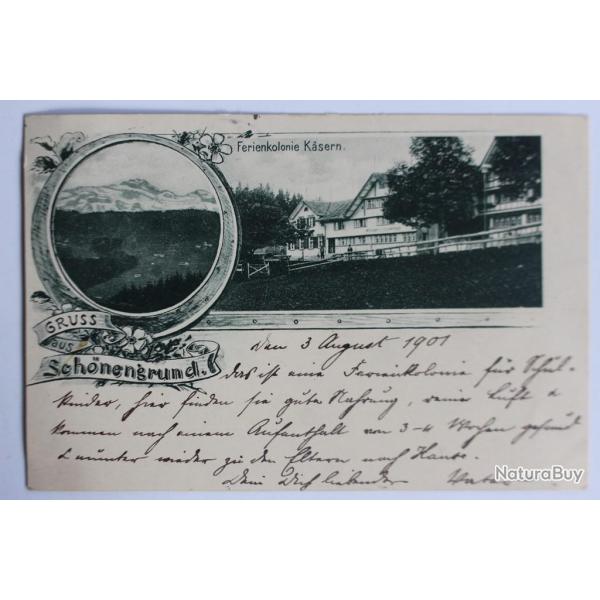 Ferienkolonie Käsern.
GRUSS
aus
Schönengrund.
Den 3 August 1901
Das ist eine Ferienkolonie für Schul-
kinder, hier finden sie gute Nahrung, reine Luft &
kommen nach einem Aufenthalt von 3-4 Wochen gesund
& munter wieder zu den Eltern nach Hause.
Dein Dich liebender Vater
NaturaBuy